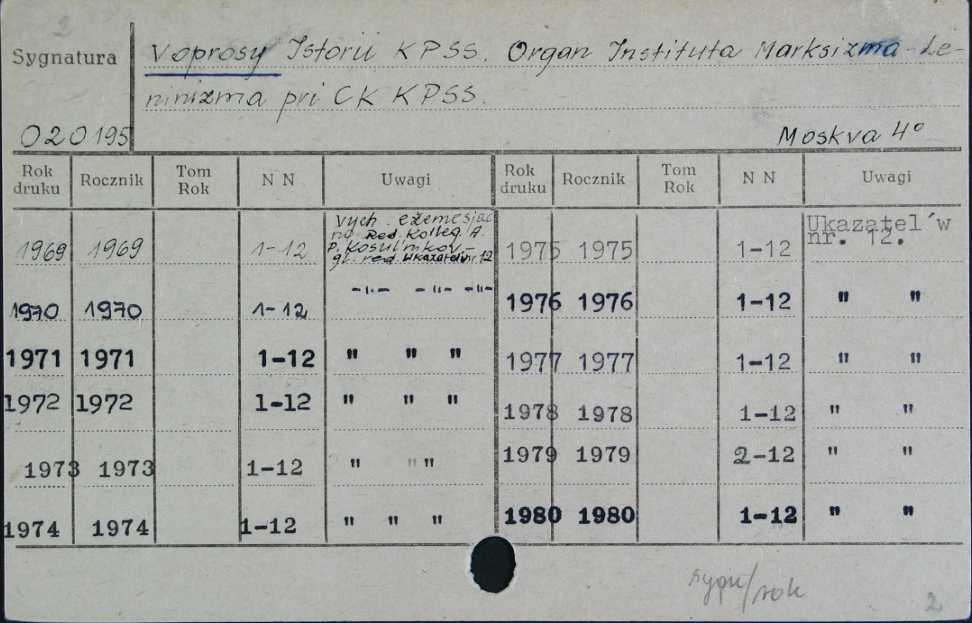 Sygnatura
Voprosy Istorii KPSS. Organ Instituta Marksizma-Le-
ninizma pri CK KPSS.
020195
Moskva 4°
Rok druku Rocznik Tom Rok N N Uwagi Rok druku Rocznik Tom Rok N N Uwagi
1969 1969 1-12 Vych. ežemesjac
no. Red. Kolleg. A.
P. Kosul'nikov -
gl. red. nr. 12
1970 1970 1-12 -"- -"- -"-
1971 1971 1-12 " " "
1972 1972 1-12 " " "
1973 1973 1-12 " "
1974 1974 1-12 " " "
1975 1975 1-12 Ukazatel´w
nr. 12.
1976 1976 1-12 " "
1977 1977 1-12 " "
1978 1978 1-12 " "
1979 1979 2-12 " "
1980 1980 1-12 " "
sygn/rok
2